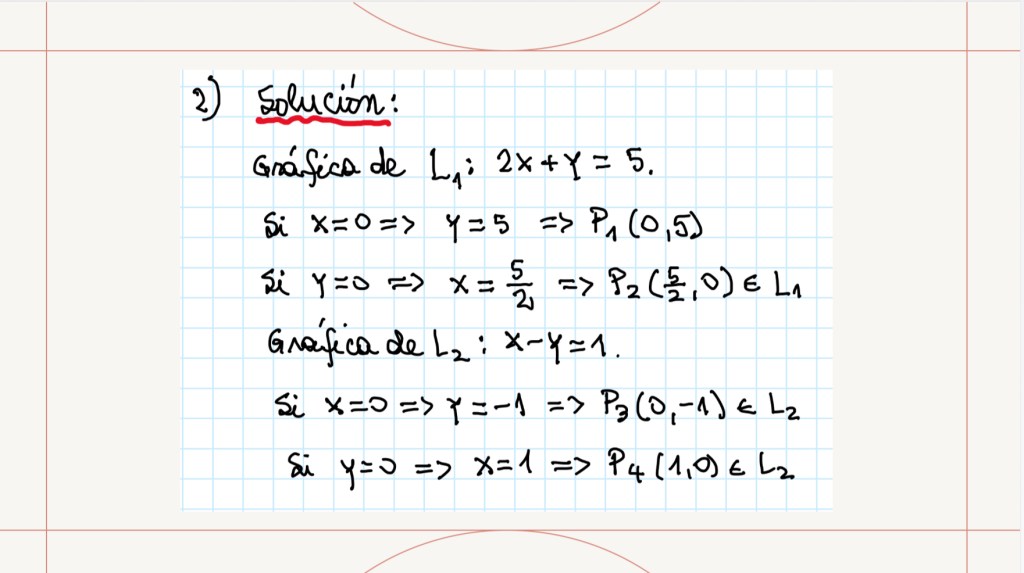 2) Solución:
Gráfica de L₁: 2x + y = 5.
Si x=0 => y=5 => P₁(0,5)
Si y=0 => x = 5/2 => P₂(5/2,0) ∈ L₁
Gráfica de L₂: x-y=1.
Si x=0 => y=-1 => P₃(0,-1) ∈ L₂
Si y=0 => x=1 => P₄(1,0) ∈ L₂